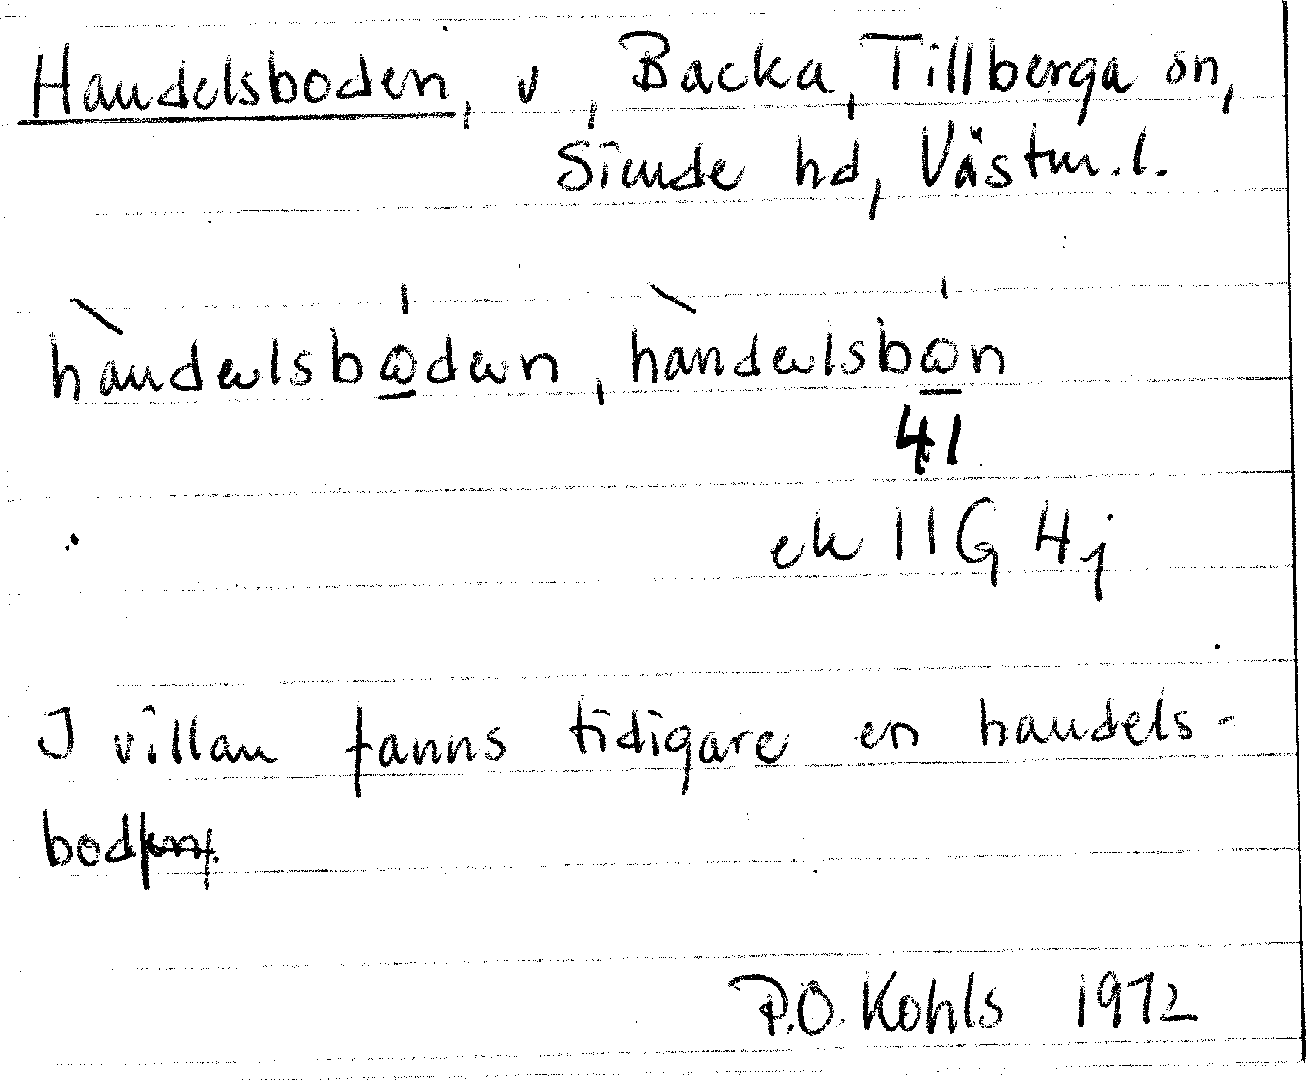 Handelsboden, v, Backa, Tillberga sn,
Siende hd, Västm.l.
hàndəlsbώ̱dən, hàndəlsbώ̱n
41
ek 11G 4j
I villan fanns tidigare en handels-
bod
P.O. Kohls 1972